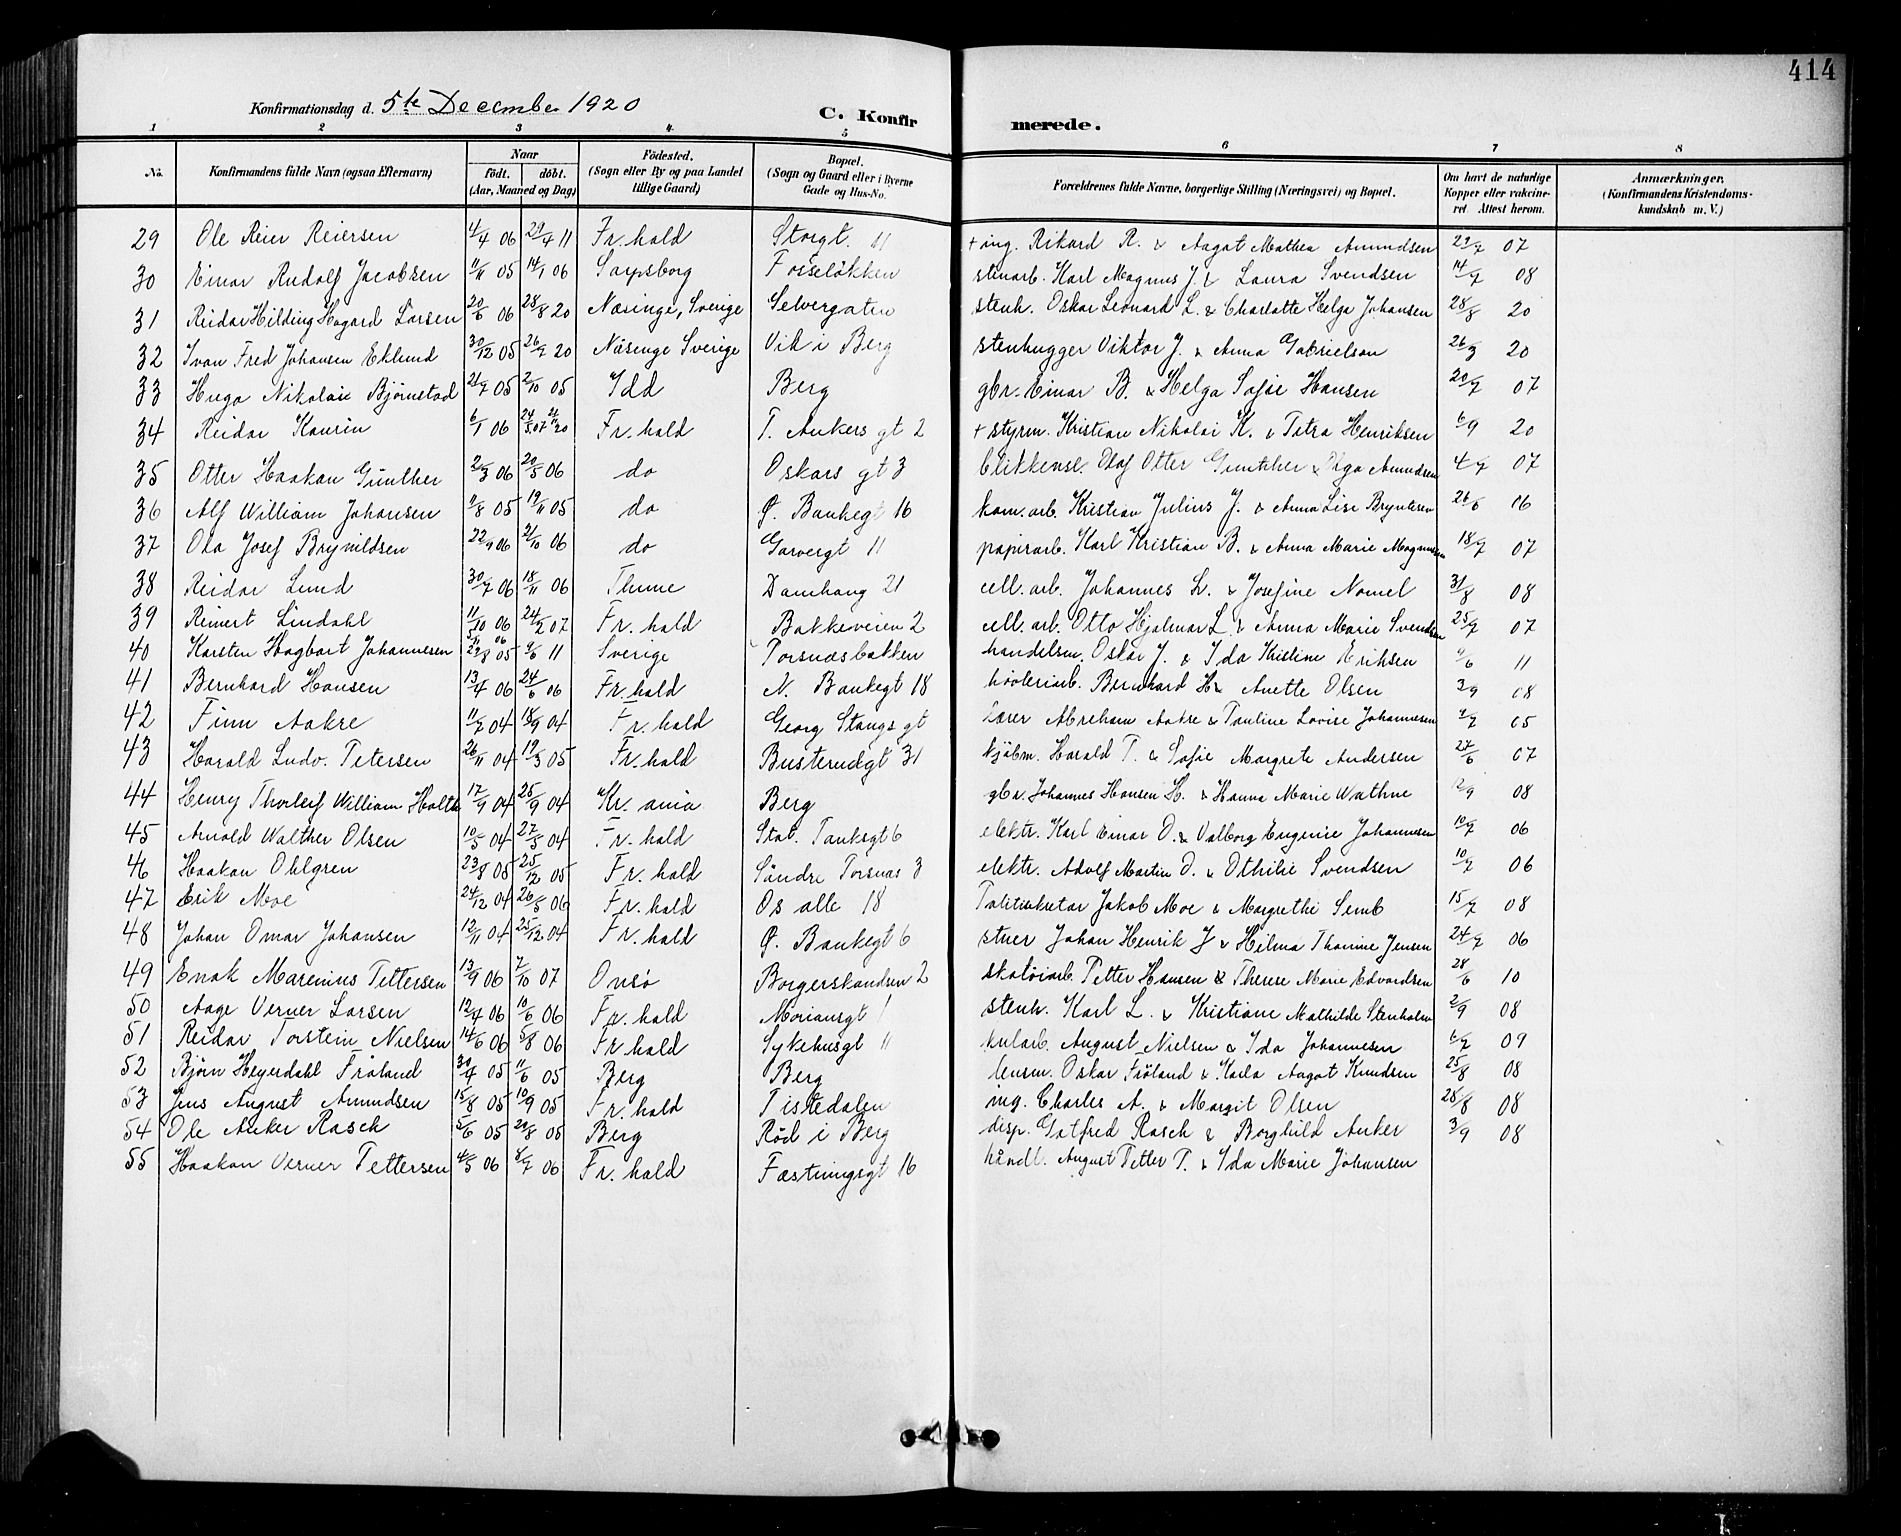 414
Konfirmationsdag d. 5te December 1920 C. Konfir merede.
1 2 3 4. 5 6 7 8
No. Konfirmandens fulde Navn (ogsaa Efternavn) Naar födt. döbt. (Aar, Maaned og Dag) Födested. (Sogn eller By og paa Landet tillige Gaard) Bopæl. (Sogn og Gaard eller i Byerne Gade og Hus-No. Forældrenes fulde Navne, borgerlige Stilling (Næringsvei) og Bopæl. Om havt de naturlige Kopper eller vakcineret. Attest herom. Anmærkninger. (Konfirmandens Kristendomskundskab m. V.)
29 Ole Reier Reiersen 4/4 06 29/4 11 Fr. hald Storgt. 11 + ing. Rikard R. & Aagot Mathea Amundsen 27 07
30 Einar Rudolf Jacobsen 11/11 05 14/1 06 Sarpsborg Fosseløkken stenarb. Karl Magnus J. & Laura Svendsen 14/7 08
31 Reidar Hilding Hagard Larsen 20/6 06 28/8 20 Næsinge, Sverige Sølvergaten stenh. Oskar Leonard L. & Charlotte Helga Johansen 28/8 20
32 Ivan Fred Johansen Eklund 30/12 05 26/7 20 Näsinge Sverige Vik i Berg stenhugger Viktor J. & Anna Gabrielson 26 20
33 Hugo Nikolai Bjørnstad 21/7 05 2/10 05 Idd Berg gbr. Einar B. & Helga Sofie Hansen 20/7 07
34 Reidar Kaurin 6/1 06 24/5 07 20 Fr. hald P. Ankers gt 2 + styrm. Kristian Nikolai K. & Petra Henriksen 6/9 20
35 Otter Haakon Günther 2/3 06 20/5 06 do Oskars gt 3 blikkensl. Olaf Otter Günther & Olga Amundsen 4/7 07
36 Alf William Johansen 11/8 05 19/11 05 do Ø. Bankegt 16 kom. arb. Kristian Julius J. & Anna Lise Bryntesen 26/6 06
37 Ola Josef Brynildsen 22/9 06 21/10 06 do Garvergt 11 papirarb. Karl Kristian B. & Anna Marie Magnussen 18/7 07
38 Reidar Lund 30/7 06 18/11 06 Thune Damhaug 21 cell. arb. Johannes L. & Josefine Nomel 31/8 08
39 Reinert Lindahl 11/10 06 24/2 07 Fr. hald Bakkeveien 2 cell. arb. Otto Hjalmar L. & Anna Marie Svendsen 25/7 07
40 Karsten Hagbart Johannesen 29/8 05 11 Sverige Torsnæsbakken handelsm. Oskar J. & Ida Kristine Eriksen 11
41 Bernhard Hansen 13/4 06 24/6 06 Fr. hald N. Bankegt 18 høvleriarb. Bernhard H. & Anette Olsen 3/9 08
42 Finn Aakre 11/7 04 18/9 04 Fr. hald Georg Stangs gt Lærer Abraham Aakre & Pauline Lovise Johannesen 05
43 Harald Ludv. Petersen 26/11 04 19/3 05 Fr. hald Busterudgt 31 kjøbm. Harald P. & Sofie Margrete Andersen 27/6 07
44 Henry Thorleif William Holth 17/9 04 25/9 04 Kr. ania Berg gbr. Johannes Hansen H. & Hanna Marie Wathne 12/9 08
45 Arnold Walther Olsen 10/3 04 27/3 04 Fr. hald Stat. Tanksgt 6 elektr. Karl Einar O. & Valborg Eugenie Johannesen 10/7 06
46 Haakon Ohlgren 23/8 05 25/12 05 Fr. hald Søndre Torsnæs 3 elektr. Adolf Martin O. & Othilie Svendsen 10/7 06
47 Erik Moe 24/12 04 26/5 06 Fr. hald Os alle 18 Politisekretær Jakob Moe & Margrethe Semb 15/7 08
48 Johan Omar Johansen 12/11 04 25/12 04 Fr. hald Ø. Bankegt 6 stuer Johan Henrik J & Hilma Thomine Jensen 24/7 06
49 Enok Marenius Pettersen 13/9 06 7/10 07 Onsö Borgerskandsen 2 skotøiarb. Petter Hansen & Therese Marie Edvardsen 28/6 10
50 Aage Verner Larsen 12/4 06 10/6 06 Fr. hald Moriansgt 1 stenh. Karl L. & Kristiane Mathilde Stenholm 2/9 08
51 Reidar Torstein Nielsen 14/6 06 5/8 06 Fr hald Sykehusgt 11 kularb. August Nielsen & Ida Johannesen 6/7 09
52 Bjørn Heyerdahl Frøland 30/4 05 11/6 05 Berg Berg lensm. Oskar Frøland & Karla Aagot Knudsen 25/8 08
53 Jens August Amundsen 15/8 05 10/9 05 Fr. hald Tistedalen ing. Charles A. & Margit Olsen 28/8 08
54 Ole Anker Rasch 5/6 05 29/8 05 Berg Rød i Berg disp. Gotfred Rasch & Borghild Anker 3/9 08
55 Haakon Verner Pettersen 4/5 06 8/7 06 Fr. hald Fæstningsgt 16 håndl. August Petter P. & Ida Marie Johansen